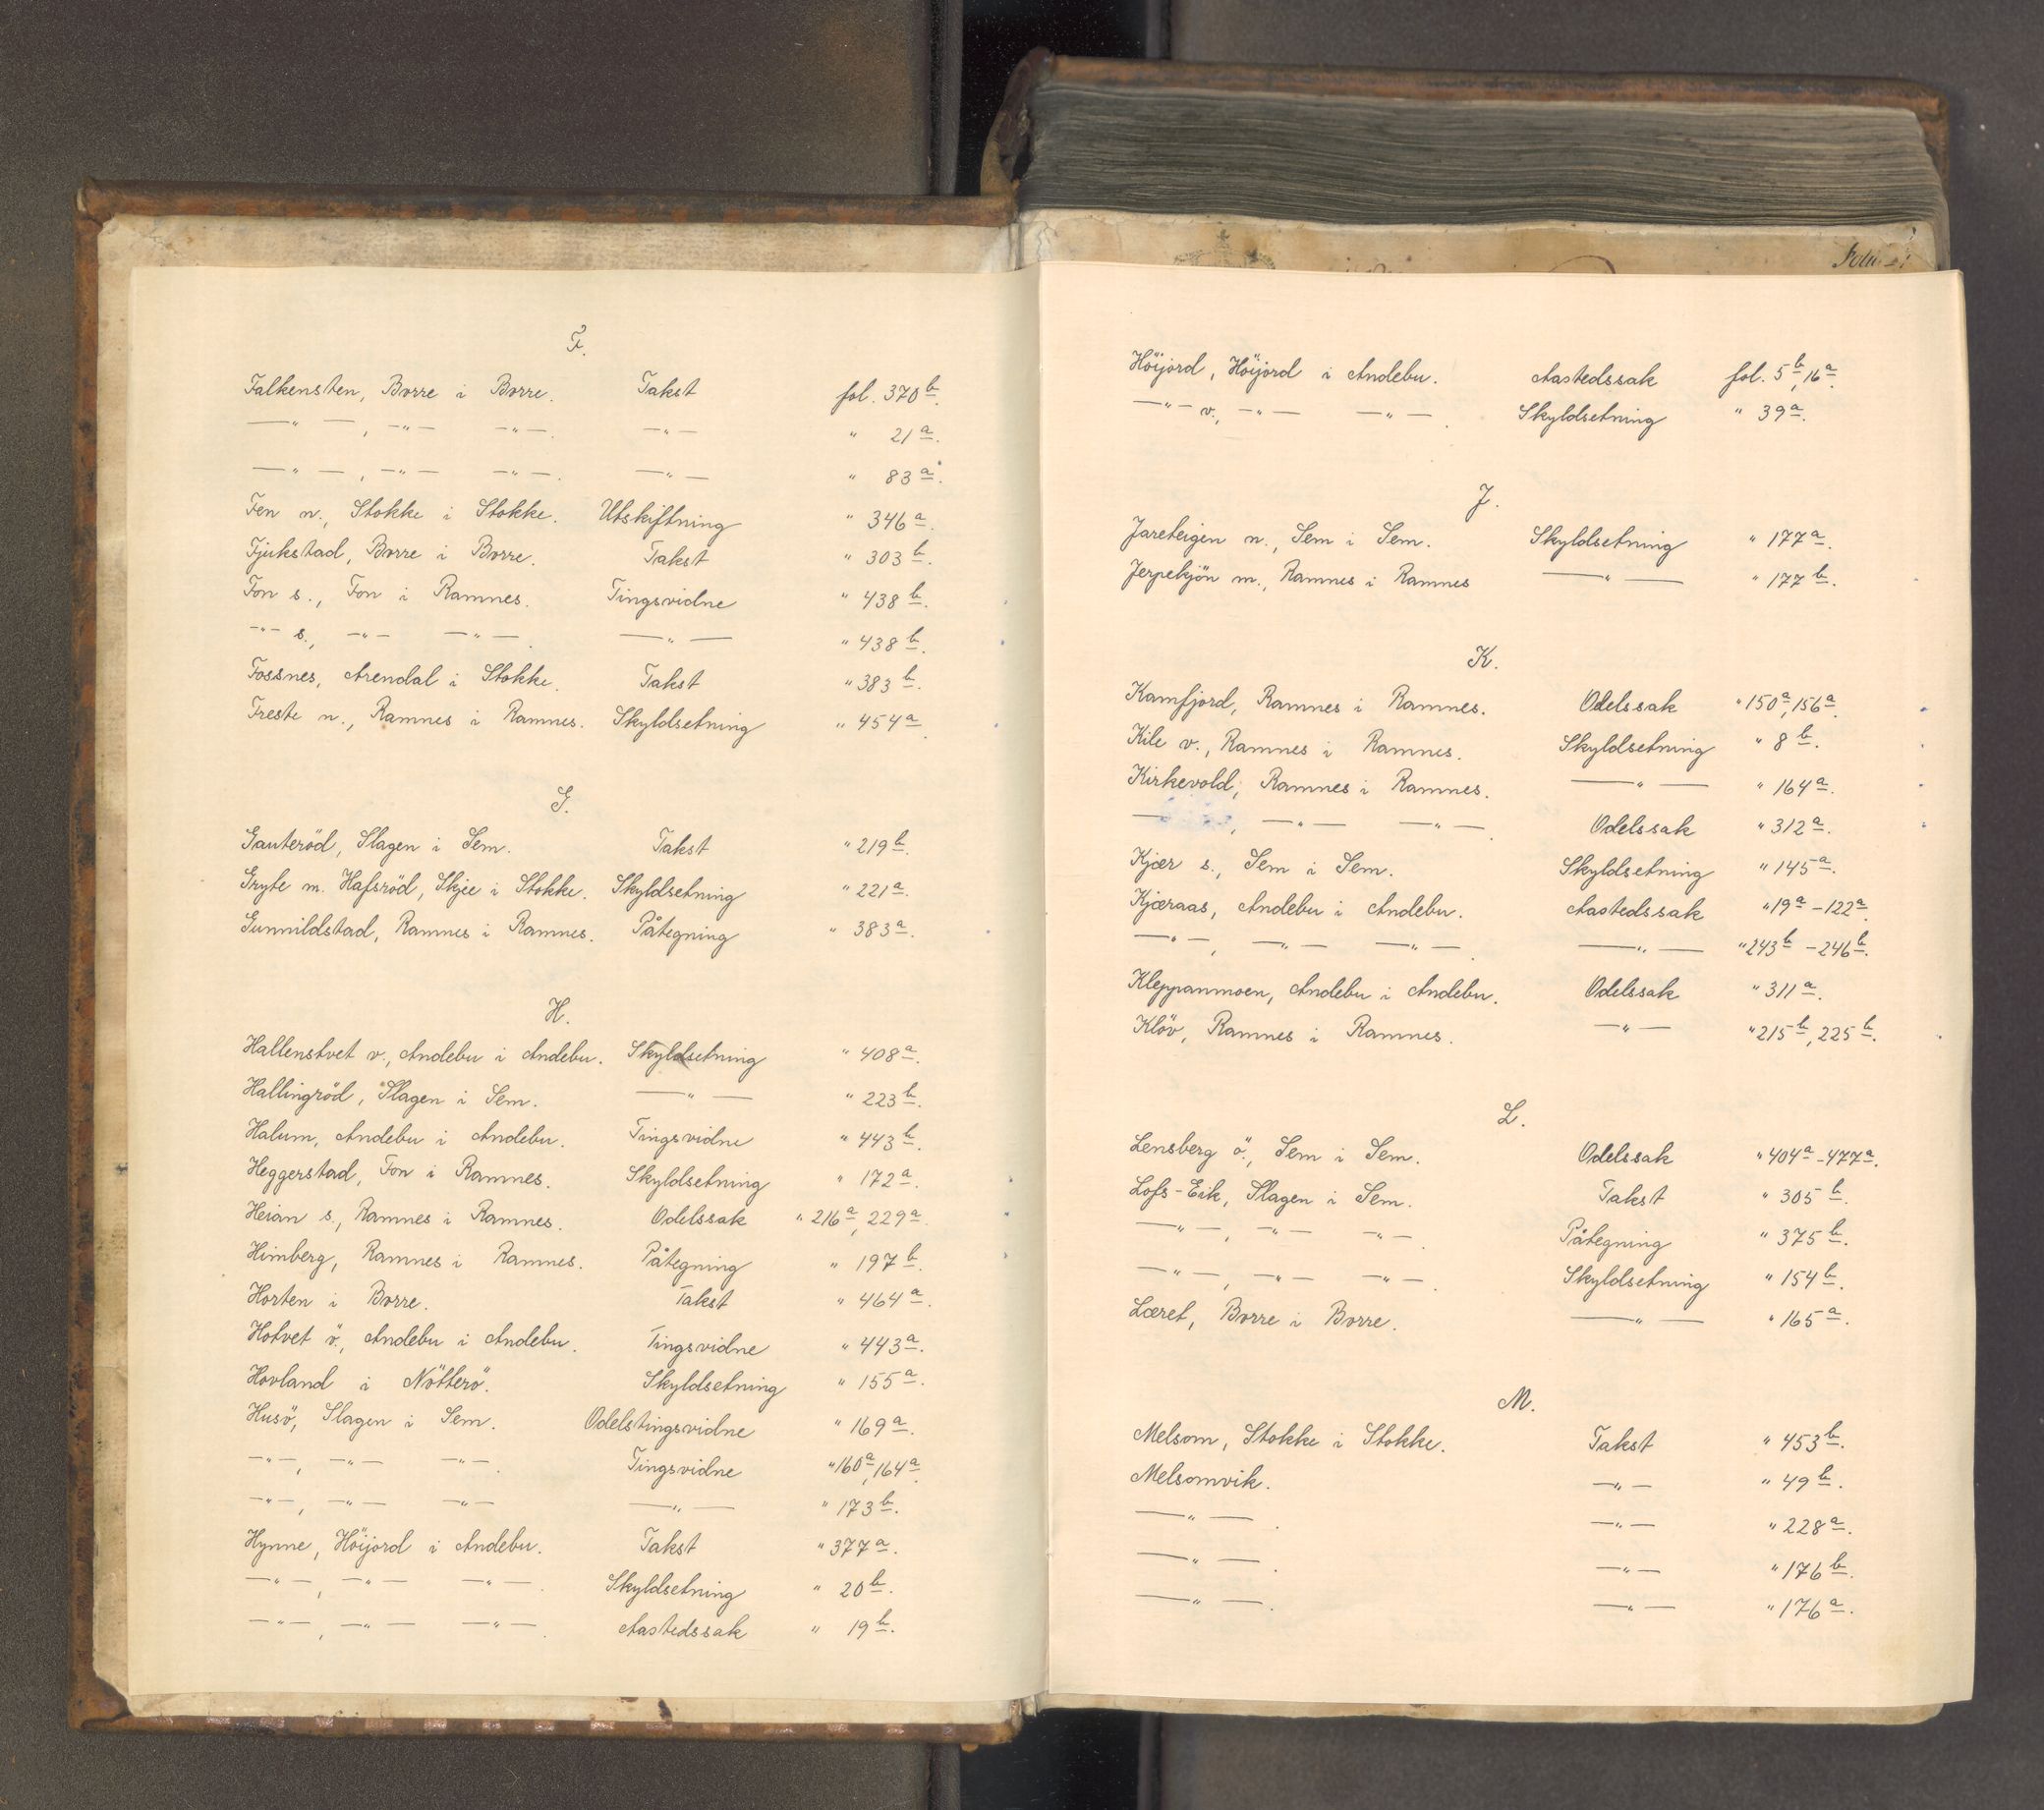 F.
Falkensten, Borre i Borre. Takst fol. 370 b.
—"—, —"— —"—. —"— " 21 a.
—"—, —"— —"—. —"— " 83 a.
Fen n., Stokke i Stokke. Utskiftning " 346 a.
Fjukstad, Borre i Borre. Takst " 303 b.
Fon s., Fon i Ramnes. Tingsvidne " 438 b.
—"— s., —"— —"—. —"— " 438 b.
Fossnes, Arendal i Stokke. Takst " 383 b.
Freste n., Ramnes i Ramnes. Skyldsetning " 454 a.
G.
Gauteröd, Slagen i Sem. Takst " 219 b.
Gryte m. Hafsröd, Skjee i Stokke. Skyldsetning " 221 a.
Gunnildstad, Ramnes i Ramnes. Påtegning " 383 a.
H.
Hallenstvet v., Andebu i Andebu. Skyldsetning " 408 a.
Hallingröd, Slagen i Sem. —"— " 223 b.
Halum, Andebu i Andebu. Tingsvidne " 443 b.
Heggerstad, Fon i Ramnes. Skyldsetning " 172 a.
Heian s., Ramnes i Ramnes. Odelssak " 216 a, 229 a.
Himberg, Ramnes i Ramnes. Påtegning " 197 b.
Horten i Borre. Takst " 464 a.
Hotvet ö., Andebu i Andebu. Tingsvidne " 443 a.
Hovland i Nötterö. Skyldsetning " 155 a.
Husö, Slagen i Sem. Odelstingsvidne " 169 a.
—"—, —"— —"—. Tingsvidne " 160 a, 164 a.
—"—, —"— —"— —"— " 173 b.
Hynne, Höijord i Andebu. Takst " 377 a.
—"—, —"— —"—. Skyldsetning " 20 b.
—"—, —"— —"—. Aastedssak " 19 b.
Folio
Höijord, Höijord i Andebu. Aastedssak fol. 5 b, 16 a.
—"— v., —"— —"—. Skyldsetning " 39 a.
J.
Jareteigen n., Sem i Sem. Skyldsetning " 177 a.
Jerpekjön m., Ramnes i Ramnes —"— " 177 b.
K.
Kamfjord, Ramnes i Ramnes. Odelssak " 150 a, 156 a.
Kile v., Ramnes i Ramnes. Skyldsetning " 8 b.
Kirkevold, Ramnes i Ramnes. —"— " 164 a.
—"—, —"— —"—. Odelssak " 312 a.
Kjær s., Sem i Sem. Skyldsetning " 145 a.
Kjæraas, Andebu i Andebu. Aastedssak " 19 a - 122 a.
—"—, —"— —"—. —"— " 243 b - 246 b.
Kleppanmoen, Andebu i Andebu. Odelssak " 311 a.
Klöv, Ramnes i Ramnes. —"— " 215 b, 225 b.
L.
Lensberg ö., Sem i Sem. Odelssak " 404 a - 477 a.
Lofs-Eik, Slagen i Sem. Takst " 305 b.
—"—, —"— —"—. Påtegning " 375 b.
—"—, —"— —"—. Skyldsetning " 154 b.
Læret, Borre i Borre. —"— " 165 a.
M.
Melsom, Stokke i Stokke. Takst " 453 b.
Melsomvik. —"— " 49 b.
—"—. —"— " 228 a.
—"—. —"— " 176 b.
—"—. —"— " 176 a.